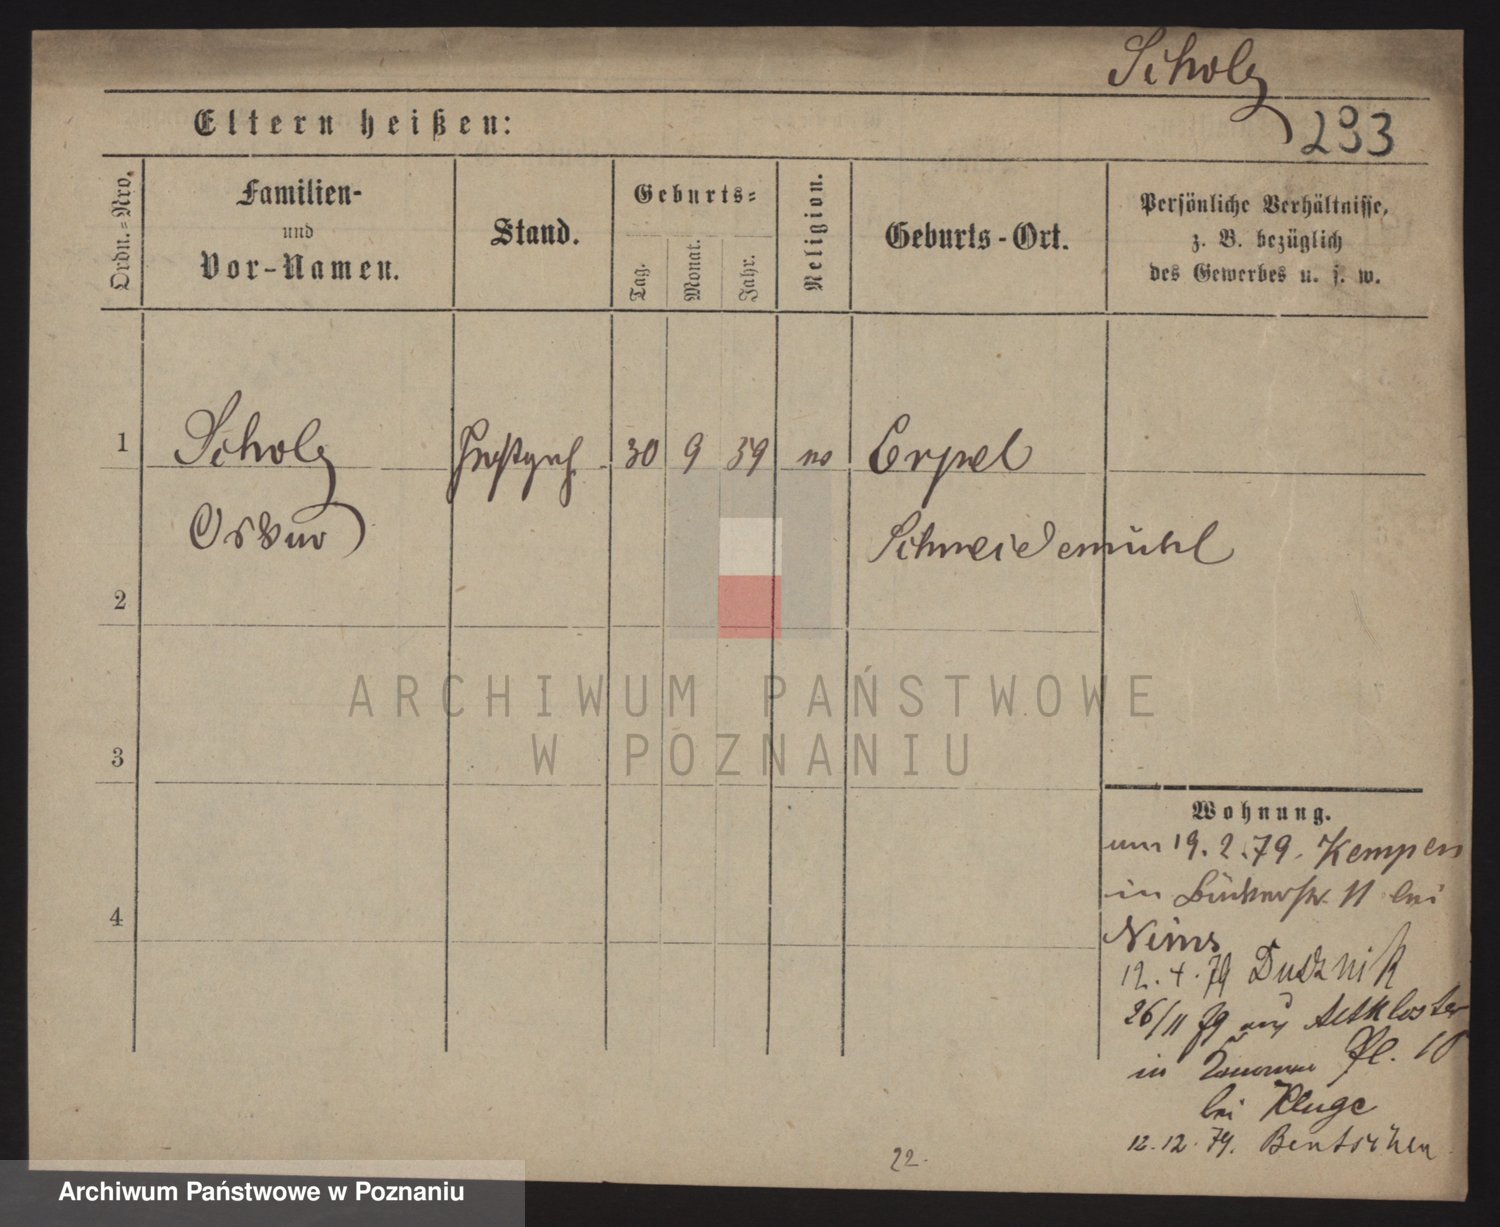 Scholz
293
Eltern heißen:
Ordn.-Nro.
Familien-
und
Vor-Namen.
Stand.
Geburts-
Tag.
Monat.
Jahr.
Religion.
Geburts-Ort.
Persönliche Verhältnisse,
z. B. bezüglich
des Gewerbes u. s. w.
1
Scholz
30
9
59
Erpel
Oskar
Schneidemühl
2
3
4
ARCHIWUM PAŃSTWOWE
W POZNANIU
Wohnung.
19.2.79. Kempen
in 11 bei
Nims
12.4.79 Dusznik
26/11 79 aus Altkloster
in Pl. 10
bei Kluge
12.12.79. Bentschen
22.
Archiwum Państwowe w Poznaniu